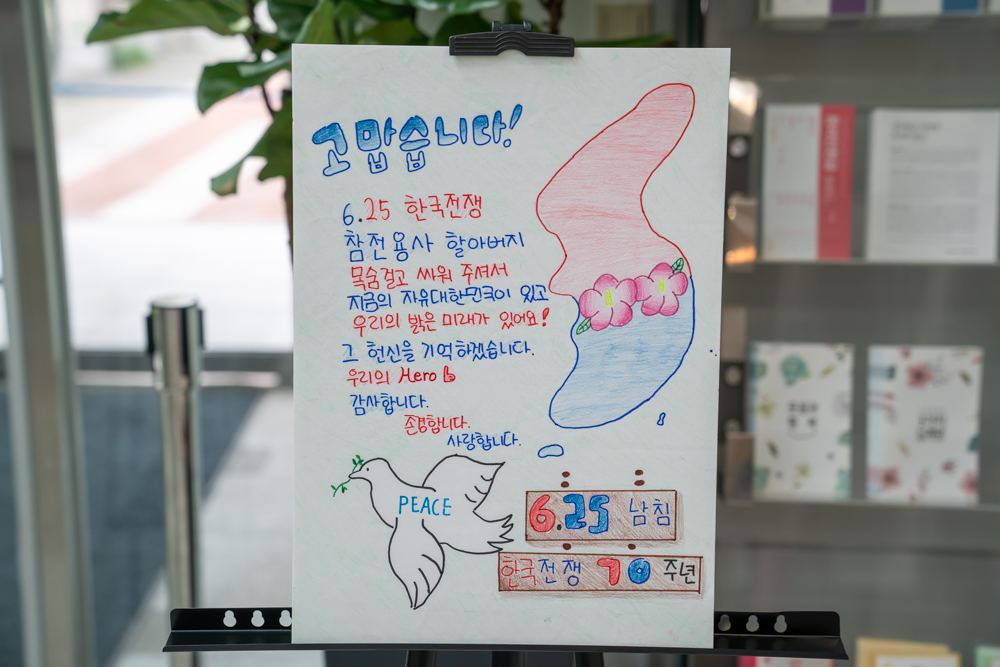 고맙습니다!
6.25 한국전쟁
참전용사 할아버지
목숨걸고 싸워 주셔서
지금의 자유대한민국이 있고
우리의 밝은 미래가 있어요!
그 헌신을 기억하겠습니다.
우리의 Hero
감사합니다.
존경합니다.
사랑합니다.
PEACE
6.25 남침
한국전쟁 70 주년